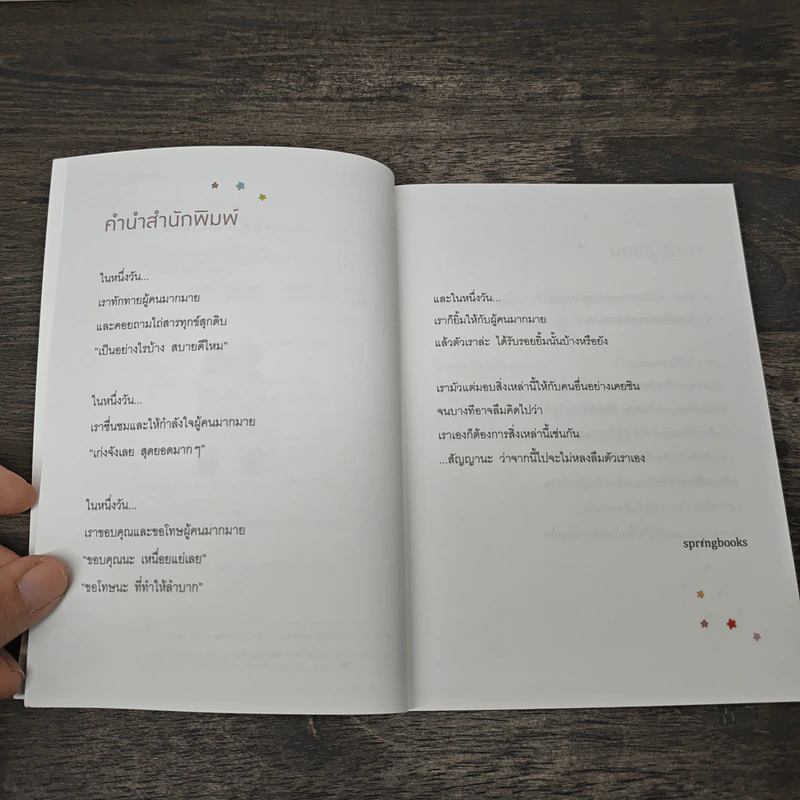 คำนำสำนักพิมพ์
ในหนึ่งวัน...
เราทักทายผู้คนมากมาย
และคอยถามไถ่สารทุกข์สุกดิบ
“เป็นอย่างไรบ้าง สบายดีไหม”
ในหนึ่งวัน...
เราชื่นชมและให้กำลังใจผู้คนมากมาย
“เก่งจังเลย สุดยอดมากๆ”
ในหนึ่งวัน...
เราขอบคุณและขอโทษผู้คนมากมาย
“ขอบคุณนะ เหนื่อยแย่เลย”
“ขอโทษนะ ที่ทำให้ลำบาก”
และในหนึ่งวัน...
เราก็ยิ้มให้กับผู้คนมากมาย
แล้วตัวเราล่ะ ได้รับรอยยิ้มนั้นบ้างหรือยัง
เรามัวแต่มอบสิ่งเหล่านี้ให้กับคนอื่นอย่างเคยชิน
จนบางทีอาจลืมคิดไปว่า
เราเองก็ต้องการสิ่งเหล่านี้เช่นกัน
...สัญญานะ ว่าจากนี้ไปจะไม่หลงลืมตัวเราเอง
springbooks